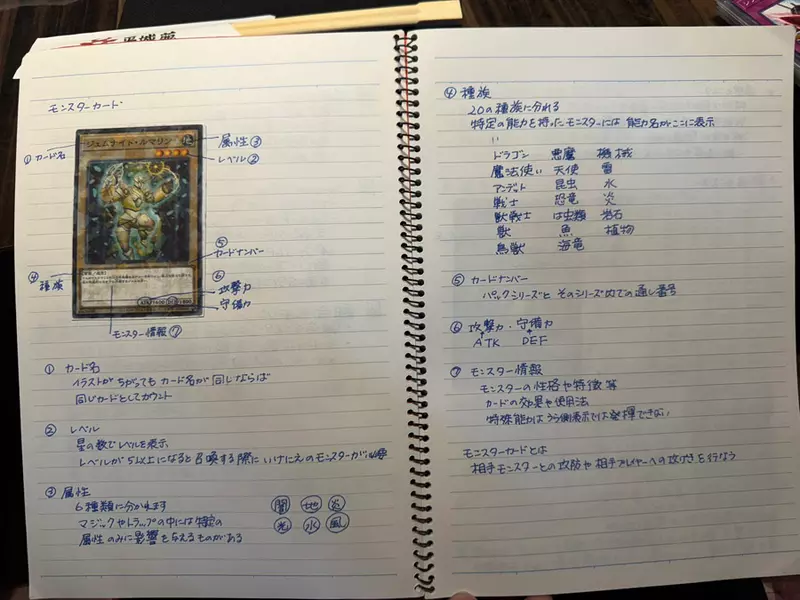 モンスターカード
① カード名
ジェムナイト・ルマリン
属性③
レベル②
⑤
カードナンバー
④
種族
⑥
攻撃力
守備力
モンスター情報⑦
① カード名
イラストがちがってもカード名が同じならば
同じカードとしてカウント
② レベル
星の数でレベルを表示
レベルが5以上になると召喚する際にいけにえのモンスターが必要
③ 属性
6種類に分かれます
マジックやトラップの中には特定の
属性のみに影響を与えるものがある
闇 地 炎
光 水 風
④ 種族
20の種族に分れる
特定の能力を持ったモンスターには 能力名がここに表示
ドラゴン 悪魔 機械
魔法使い 天使 雷
アンデット 昆虫 水
戦士 恐竜 炎
獣戦士 は虫類 岩石
獣 魚 植物
鳥獣 海竜
⑤ カードナンバー
パックシリーズと そのシリーズ内での通し番号
⑥ 攻撃力・守備力
ATK DEF
⑦ モンスター情報
モンスターの性格や特徴等
カードの効果や使用法
特殊能力はうら側表示では発揮できない
モニスターカードとは
相手モンスターとの攻防や相手プレイヤーへの攻げきを行なう